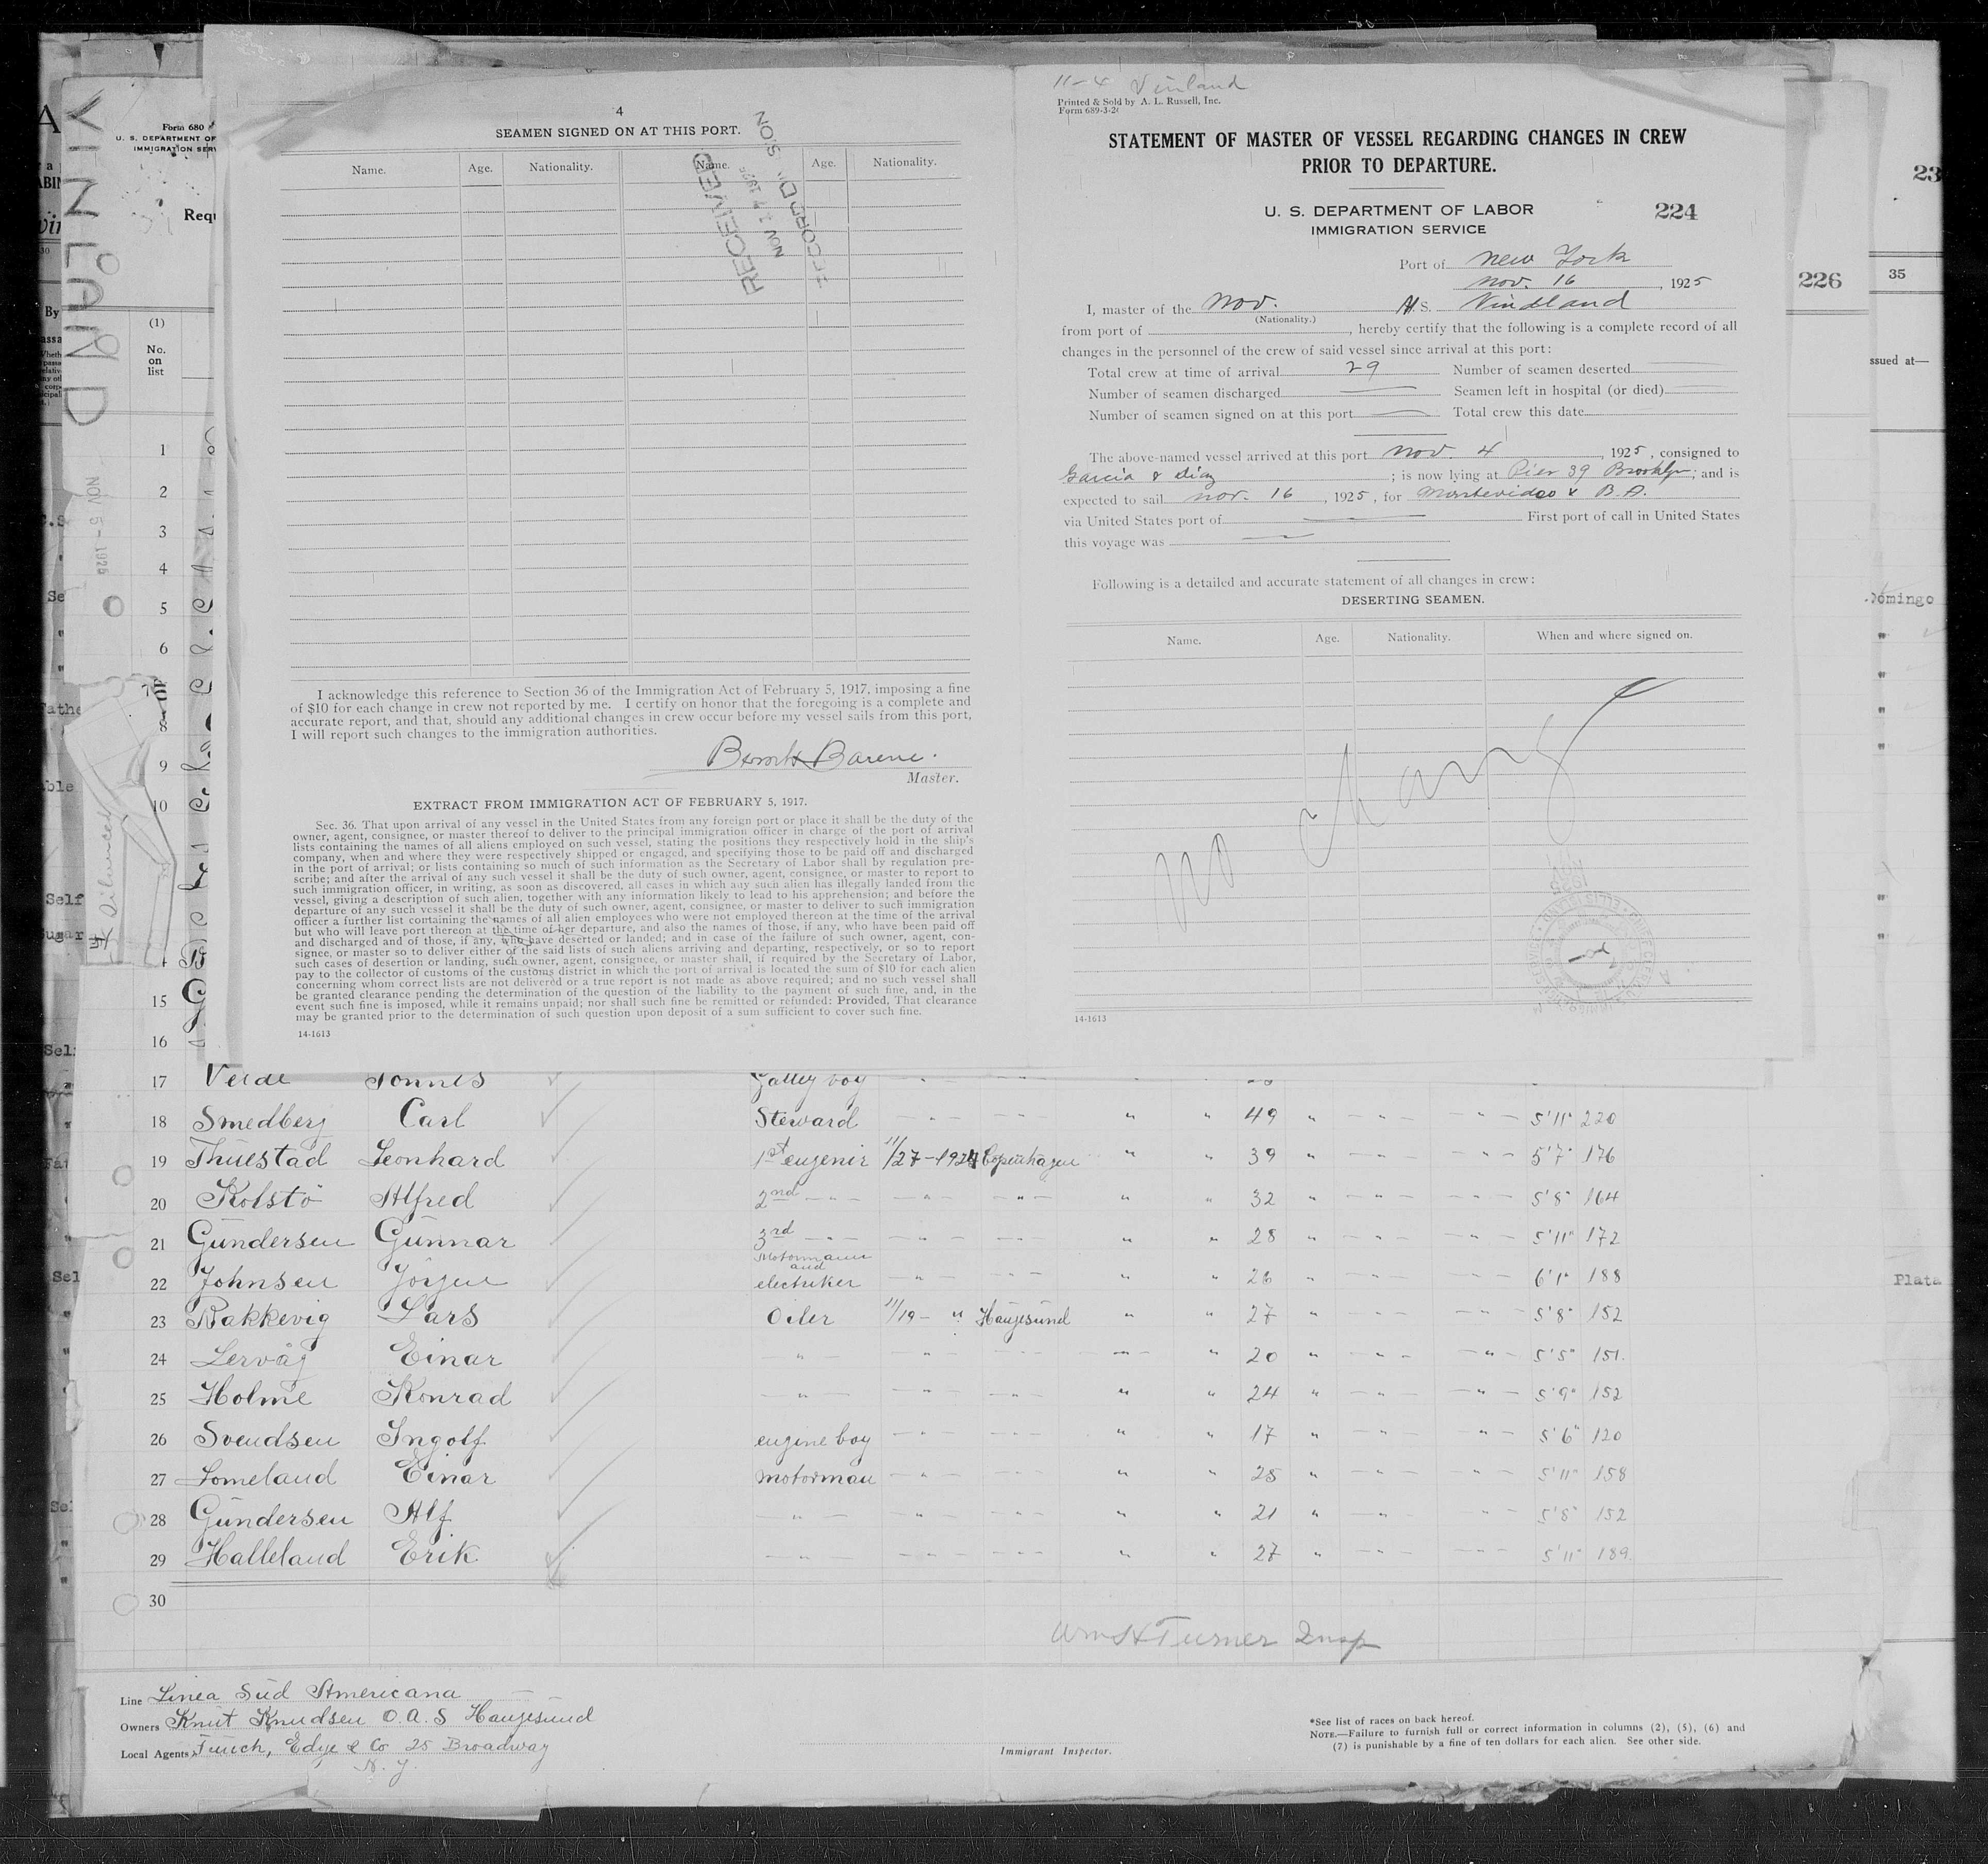 4
SEAMEN SIGNED ON AT THIS PORT.
Name. Age. Nationality. Name. Age. Nationality.
RECEIVED
NOV 17 1925
RECORD DIVISION
I acknowledge this reference to Section 36 of the Immigration Act of February 5, 1917, imposing a fine
of $10 for each change in crew not reported by me. I certify on honor that the foregoing is a complete and
accurate report, and that, should any additional changes in crew occur before my vessel sails from this port,
I will report such changes to the immigration authorities.
Barene.
Master.
EXTRACT FROM IMMIGRATION ACT OF FEBRUARY 5, 1917.
Sec. 36. That upon arrival of any vessel in the United States from any foreign port or place it shall be the duty of the
owner, agent, consignee, or master thereof to deliver to the principal immigration officer in charge of the port of arrival
lists containing the names of all aliens employed on such vessel, stating the positions they respectively hold in the ship's
company, when and where they were respectively shipped or engaged, and specifying those to be paid off and discharged
in the port of arrival; or lists containing so much of such information as the Secretary of Labor shall by regulation pre-
scribe; and after the arrival of any such vessel it shall be the duty of such owner, agent, consignee, or master to report to
such immigration officer, in writing, as soon as discovered, all cases in which any such alien has illegally landed from the
vessel, giving a description of such alien, together with any information likely to lead to his apprehension; and before the
departure of any such vessel it shall be the duty of such owner, agent, consignee, or master to deliver to such immigration
officer a further list containing the names of all alien employees who were not employed thereon at the time of the arrival
but who will leave port thereon at the time of her departure, and also the names of those, if any, who have been paid off
and discharged and of those, if any, who have deserted or landed; and in case of the failure of such owner, agent, con-
signee, or master so to deliver either of the said lists of such aliens arriving and departing, respectively, or so to report
such cases of desertion or landing, such owner, agent, consignee, or master shall, if required by the Secretary of Labor,
pay to the collector of customs of the customs district in which the port of arrival is located the sum of $10 for each alien
concerning whom correct lists are not delivered or a true report is not made as above required; and no such vessel shall
be granted clearance pending the determination of the question of the liability to the payment of such fine, and, in the
event such fine is imposed, while it remains unpaid; nor shall such fine be remitted or refunded: Provided, That clearance
may be granted prior to the determination of such question upon deposit of a sum sufficient to cover such fine.
14-1613
11-4 Vinland
Printed & Sold by A. L. Russell, Inc.
Form 689-3-2
STATEMENT OF MASTER OF VESSEL REGARDING CHANGES IN CREW
PRIOR TO DEPARTURE.
U. S. DEPARTMENT OF LABOR
IMMIGRATION SERVICE
224
Port of New York
Nov. 16, 1925
I, master of the Nov. M.S. Vindland
(Nationality.)
from port of , hereby certify that the following is a complete record of all
changes in the personnel of the crew of said vessel since arrival at this port:
Total crew at time of arrival 29 Number of seamen deserted
Number of seamen discharged — Seamen left in hospital (or died)
Number of seamen signed on at this port — Total crew this date
The above-named vessel arrived at this port Nov. 4, 1925, consigned to
Garcia & Diaz; is now lying at Pier 39 Brooklyn; and is
expected to sail Nov. 16, 1925, for Montevideo & B.A.
via United States port of — First port of call in United States
this voyage was —
Following is a detailed and accurate statement of all changes in crew:
DESERTING SEAMEN.
Name. Age. Nationality. When and where signed on.
No Chang
14-1613
VINLAND
Form 680
U. S. DEPARTMENT OF
IMMIGRATION SERV
Requ
(1)
No.
on
list
NOV 5 - 1925
226
23
35
ssued at—
Domingo
Plata
1
2
3
4
5
6
7
8
9
10
15
16
17 Veide Tonnes Galley boy
18 Smedberg Carl Steward - " - - " - " " 49 " - " - - " - 5'11" 220
19 Thuestad Leonhard 1st eugenir 11/27-1924 Copenhagen " " 39 " - " - - " - 5'7" 176
20 Kolstö Alfred 2nd - " - - " - - " - " " 32 " - " - - " - 5'8" 164
21 Gundersen Gunnar 3rd - " - - " - - " - " " 28 " - " - - " - 5'11" 172
22 Johnsen Jörgen Motormann and electriker - " - - " - " " 26 " - " - - " - 6'1" 188
23 Rakkevig Lars Oiler 11/19 - " Haugesund " " 27 " - " - - " - 5'8" 152
24 Lervåg Einar - " - - " - - " - - " - " 20 " - " - - " - 5'5" 151.
25 Holme Konrad - " - - " - - " - " " 24 " - " - - " - 5'9" 152
26 Svendsen Ingolf engine boy - " - - " - " " 17 " - " - - " - 5'6" 120
27 Lomeland Einar motorman - " - - " - " " 25 " - " - - " - 5'11" 158
28 Gundersen Alf - " - - " - - " - " " 21 " - " - - " - 5'8" 152
29 Halleland Erik - " - - " - - " - " " 27 " - " - - " - 5'11" 189.
30
Wm H Turner Insp
Line Linea Sud Americana
Owners Knut Knudsen O.A.S Haugesund
Local Agents Funch, Edye & Co 25 Broadway
N.Y.
Immigrant Inspector.
*See list of races on back hereof.
NOTE.—Failure to furnish full or correct information in columns (2), (5), (6) and
(7) is punishable by a fine of ten dollars for each alien. See other side.